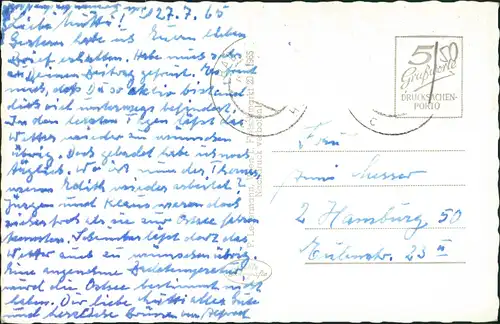 27.7.65
Liebe Mutti!
Gestern habe ich Euren lieben
Brief erhalten. Habe mich sehr
gefreut. Es freut
mich, daß Du so aktiv bist und
dich viel unterwegs befindest.
In den letzten Tagen läßt das
Wetter wieder zu wünschen
übrig. Doch gebadet habe ich noch
Wo ist nun der Thomas,
wenn Edith wieder arbeitet?
Jürgen und Klaus waren doch
sicher froh als sie zur Ostsee fahren
konnten. Scheinbar läßt dort das
Wetter auch zu wünschen übrig.
Eine angenehme Badetemperatur
wird die Ostsee bestimmt nicht
haben. Dir liebe Mutti alles Gute
und herzliche Grüsse von Alfred
5
50
Großkarte
DRUCKSACHEN-
PORTO
Frau
Messer
2 Hamburg 50
Eulenstr. 23 II